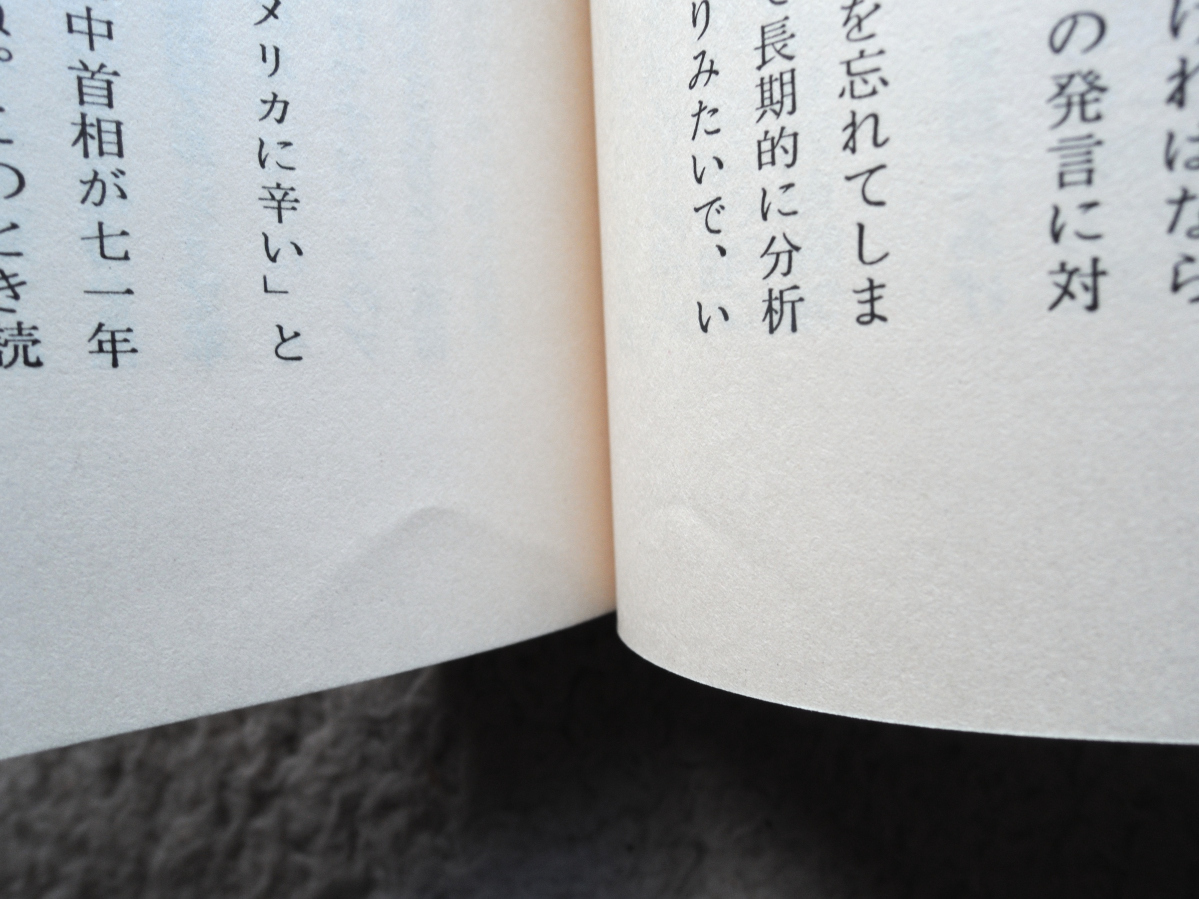 ければなら
の発言に対
を忘れてしま
て長期的に分析
りみたいで、い
メリカに辛い」と
中首相が七一年
ね。このとき読